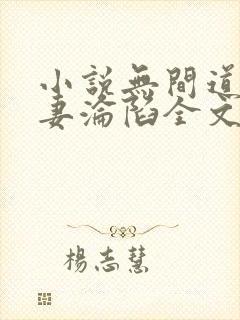 小說無間道
妻淪陷全文
楊志慧